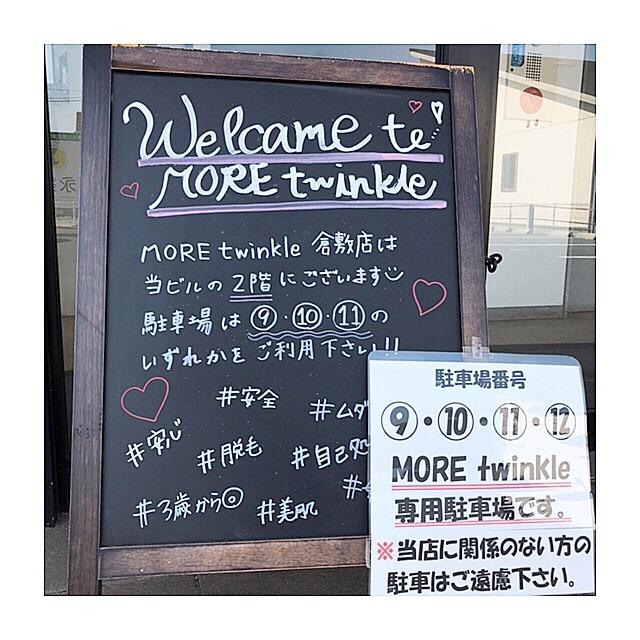 Welcome to
MORE twinkle
MORE twinkle 倉敷店は
当ビルの2階にございます
駐車場は⑨・⑩・⑪の
いずれかをご利用下さい!!
#安全
#ムダ
#安心
#脱毛
#自己処
#3歳から◎
#美肌
駐車場番号
⑨・⑩・⑪・⑫
MORE twinkle
専用駐車場です。
※当店に関係のない方の
駐車はご遠慮下さい。